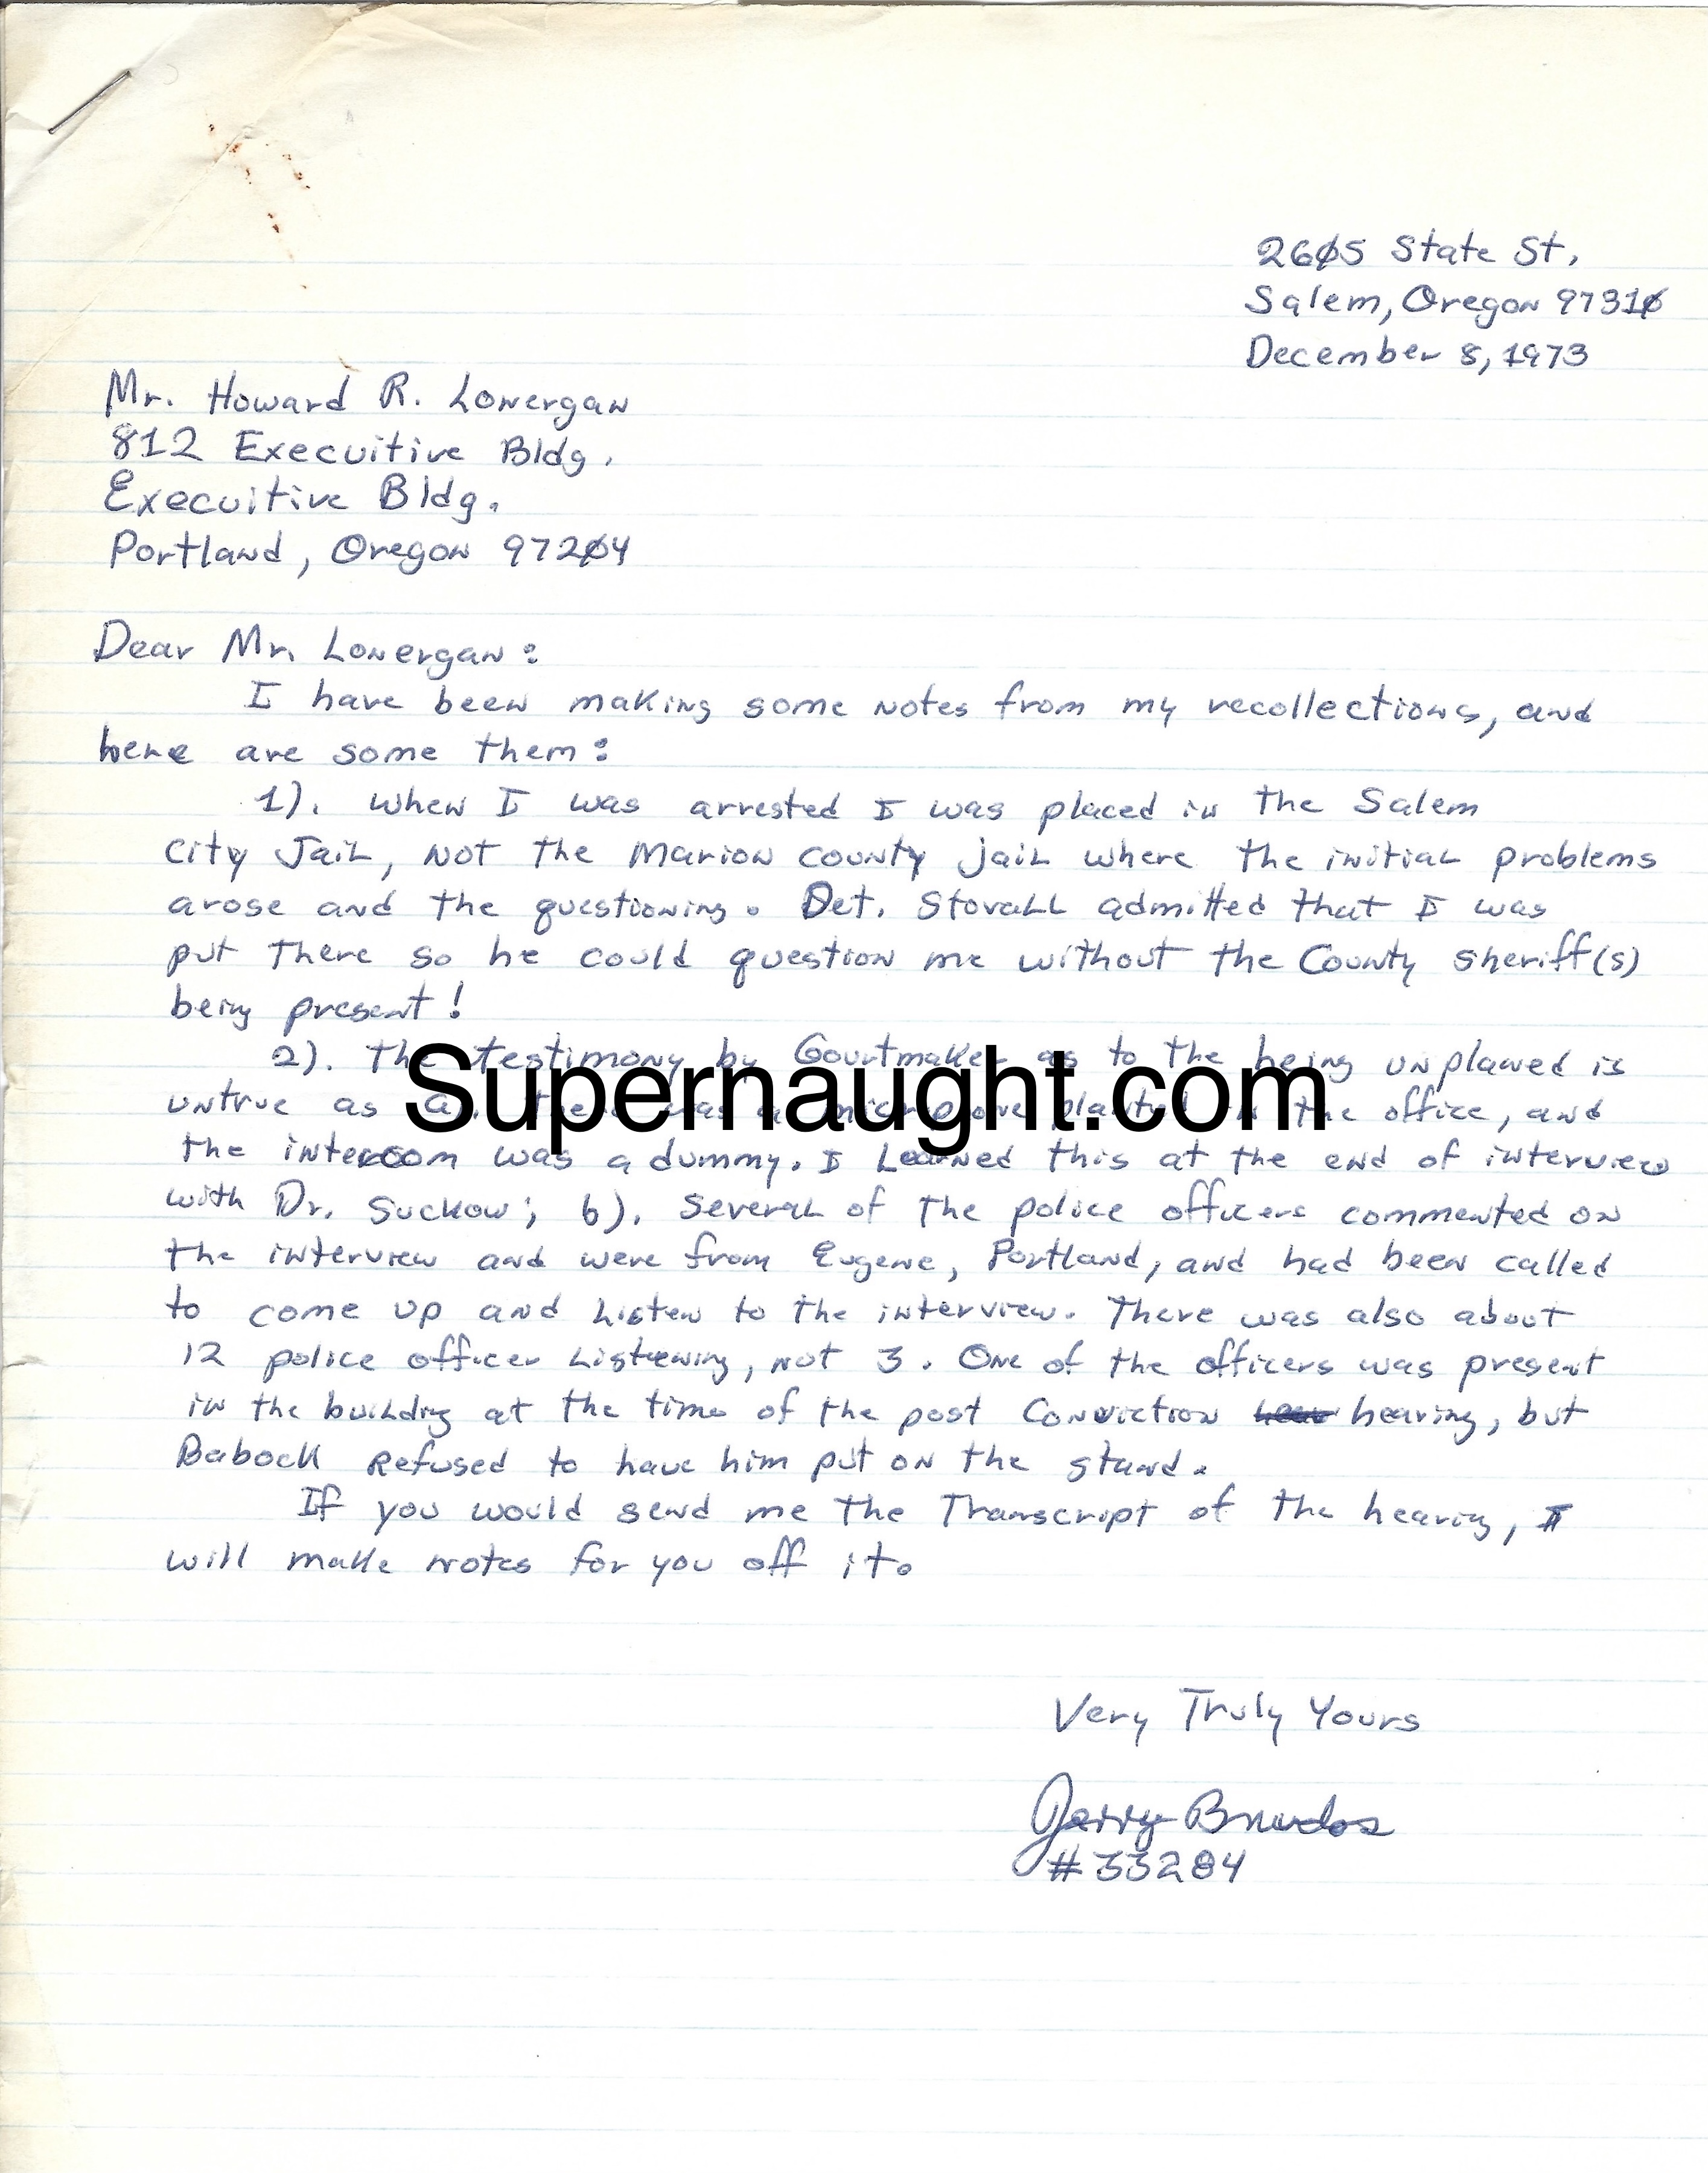 2605 State St,
Salem, Oregon 97310
December 8, 1973
Mr. Howard R. Lonergan
812 Execuitive Bldg.
Execuitive Bldg.
Portland, Oregon 97204
Dear Mr. Lonergan:
I have been making some notes from my recollections, and
here are some them:
1). When I was arrested I was placed in the Salem
City Jail, not the Marion county jail where the initial problems
arose and the questioning. Det. Stovall admitted that I was
put there so he could question me without the County sheriff(s)
being present!
2). The testimony by Gourtmaker as to the being unplaned is
untrue as a). there was a microphone planted in the office, and
Supernaught.com
the intercom was a dummy. I Learned this at the end of interview
with Dr. Suckow; b). several of the police officers commented on
the interview and were from Eugene, Portland, and had been called
to come up and Listen to the interview. There was also about
12 police officer Listening, not 3. One of the officers was present
in the building at the time of the post Conviction hearing, but
Babock Refused to have him put on the stand.
If you would send me the Transcript of the hearing, I
will make notes for you off it.
Very Truly Yours
Jerry Brudos
#33284